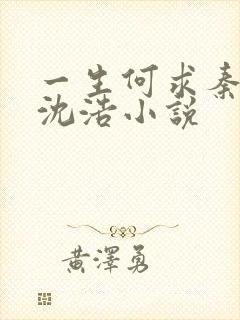 一生何求秦
沈浩小说
黄澤勇